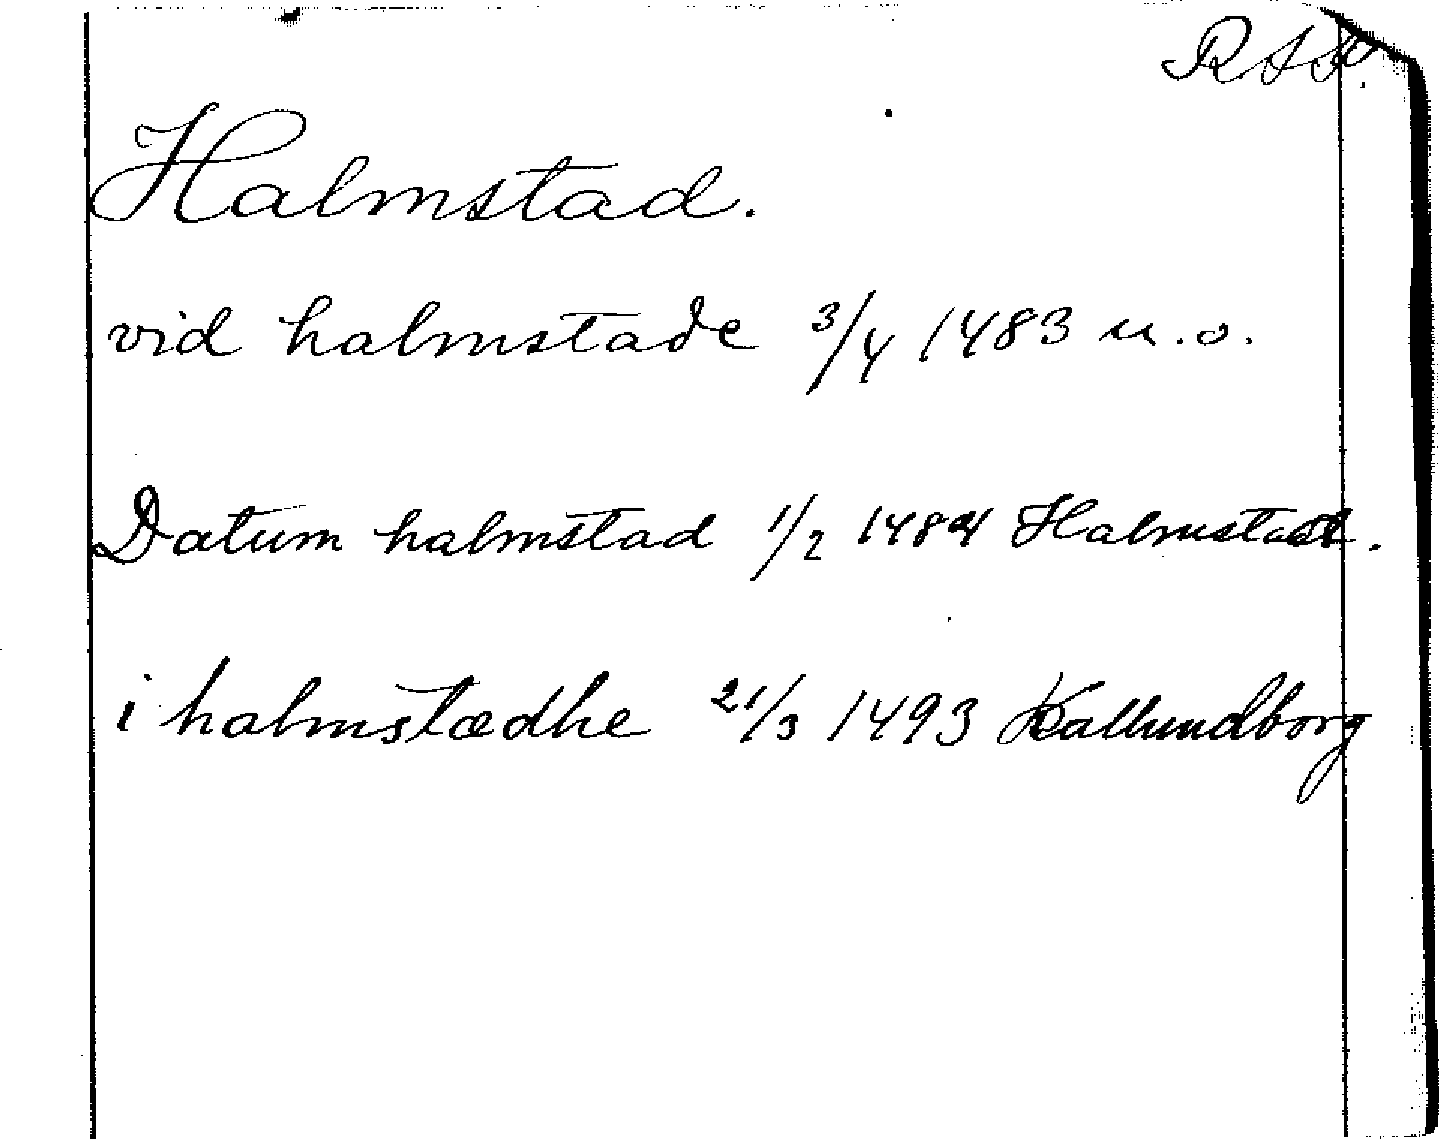 Halmstad.
vid halmstade 3/4 1483 u.o.
Datum halmstad 1/2 1484 Halmstad.
i halmstædhe 21/3 1493 Kallundborg